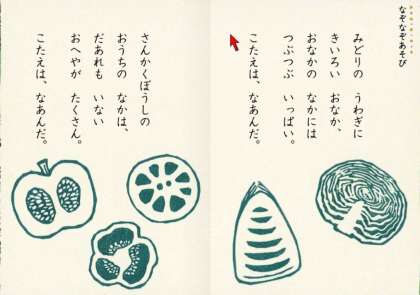 なぞなぞあそび
みどりの うわぎに
きいろい おなか、
おなかの なかには
つぶつぶ いっぱい。
こたえは、なあんだ。
さんかくぼうしの
おうちの なかは、
だあれも いない
おへやが たくさん。
こたえは、なあんだ。